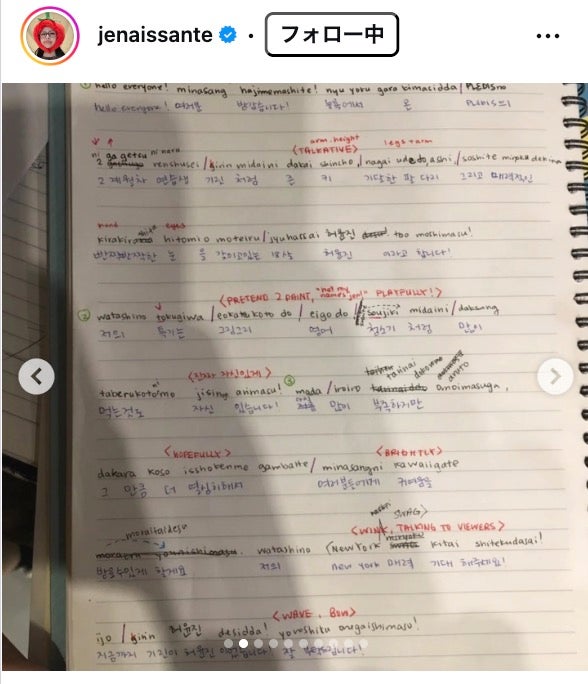 jenaissante • フォロー中
hello everyone! minasang hajimemashite! nyu yoku gara kimasidda/ PLEDISno
hello everyone! 여러분 반갑습니다! 뉴욕에서 온 PLEDIS의
arm.height legs+arm
ni ga getsu ni nara <TALKATIVE>
2 renshusei / girin midaini dakai shincho, / nagai ude do ashi, / soshite
2 개월차 연습생 기린 처럼 큰 키 기다란 팔 다리 그리고 매력적인
hand eyes
kirakira hitomi o moteiru / jyuhassai 허윤진 too moshimasu!
반짝반짝한 눈 을 갖이고있는 18살 허윤진 이라고 합니다!
<PRETEND 2 PAINT, "hey my name's jen!" PLAYFULLY!>
② watashino tokugiwa / eokatukoto do / eigo do / soujiki midaini / daksang
저의 특기는 그림그리 영어 청소기 처럼 많이
<진짜 자신있게>
taberukoto mo jising arimasu! ③ mada / iroiro anoimasuga,
먹는것도 자신 있습니다! 많이 부족하지만
<HOPEFULLY> <BRIGHTLY>
dakara koso isshokenme gambatte / minasangni kawaiigate
그 만큼 더 열심히해서 여러분들에게 귀여움을
SWAG>
moraitaidesu <WINK, TALKING TO VIEWERS>
watashino (New York kitai shitekudasai!
받을수있게 할게요 저의 new york 매력 기대 해주세요!
<WAVE, BOW>
ijo / girin 허윤진 desidda! yoroshiku onegaishimasu!
지금까지 기린이 허윤진 이었습니다! 잘 부탁드립니다!